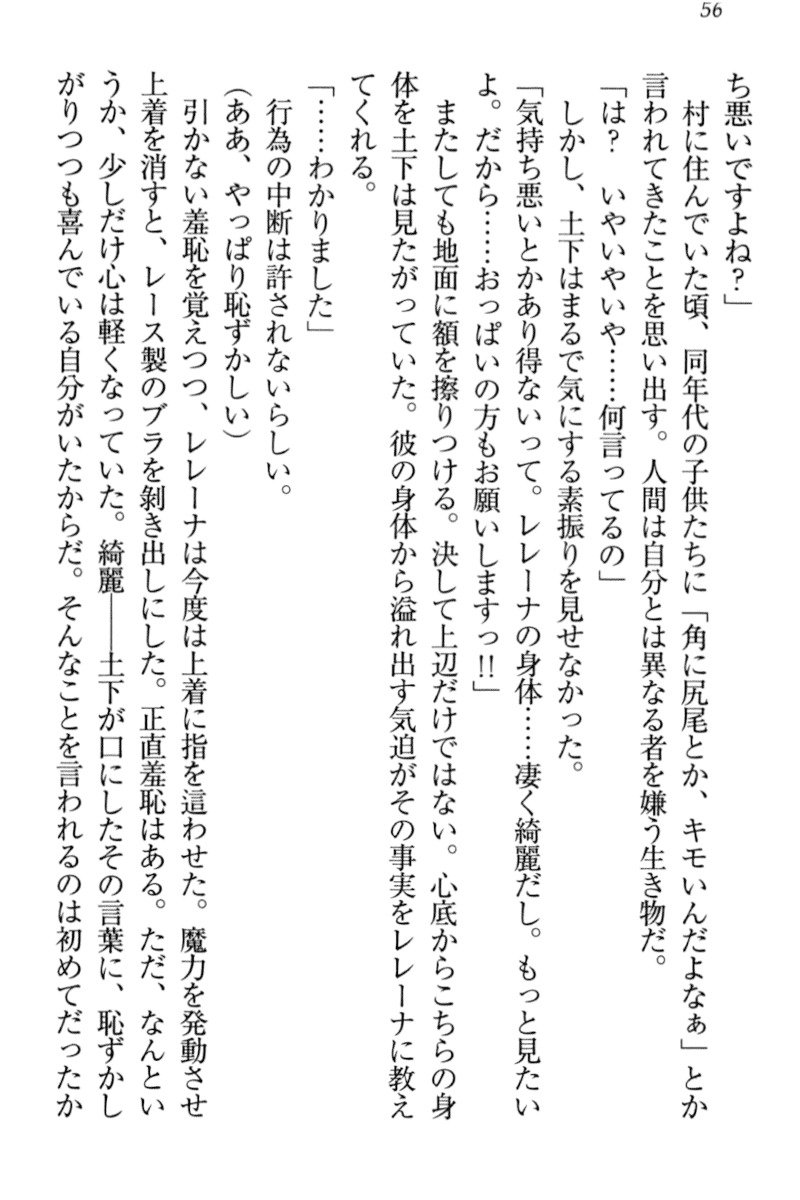 56
ち悪いですよね？」
　村に住んでいた頃、同年代の子供たちに「角に尻尾とか、キモいんだよなぁ」とか
言われてきたことを思い出す。人間は自分とは異なる者を嫌う生き物だ。
「は？　いやいやいや……何言ってるの」
　しかし、土下はまるで気にする素振りを見せなかった。
「気持ち悪いとかあり得ないって。レレーナの身体……凄く綺麗だし。もっと見たい
よ。だから……おっぱいの方もお願いしますっ!!」
　またしても地面に額を擦りつける。決して上辺だけではない。心底からこちらの身
体を土下は見たがっていた。彼の身体から溢れ出す気迫がその事実をレレーナに教え
てくれる。
「……わかりました」
　行為の中断は許されないらしい。
（ああ、やっぱり恥ずかしい）
　引かない羞恥を覚えつつ、レレーナは今度は上着に指を這わせた。魔力を発動させ
上着を消すと、レース製のブラを剝き出しにした。正直羞恥はある。ただ、なんとい
うか、少しだけ心は軽くなっていた。綺麗――土下が口にしたその言葉に、恥ずかし
がりつつも喜んでいる自分がいたからだ。そんなことを言われるのは初めてだったか